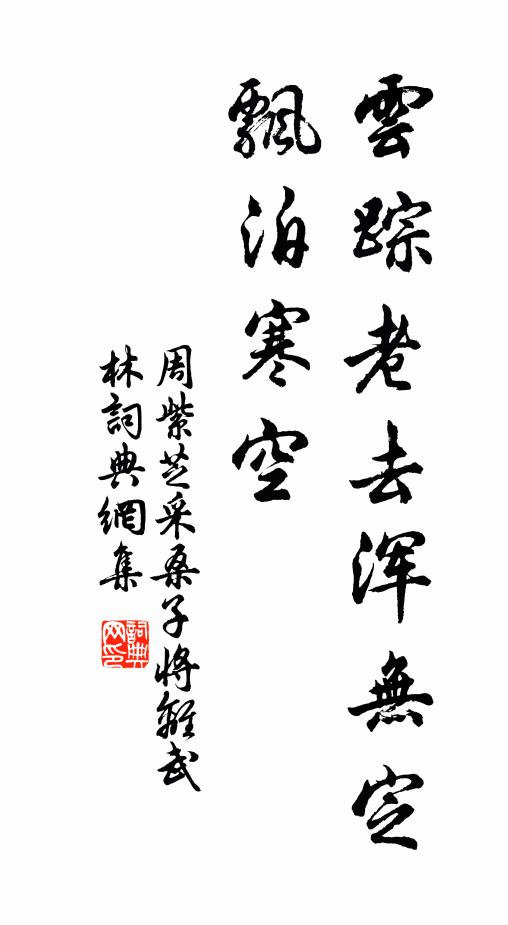 雲踪老去浑無定
飄泊寒空
周紫芝采桑子将離武
林詞典網集
詞典
网印